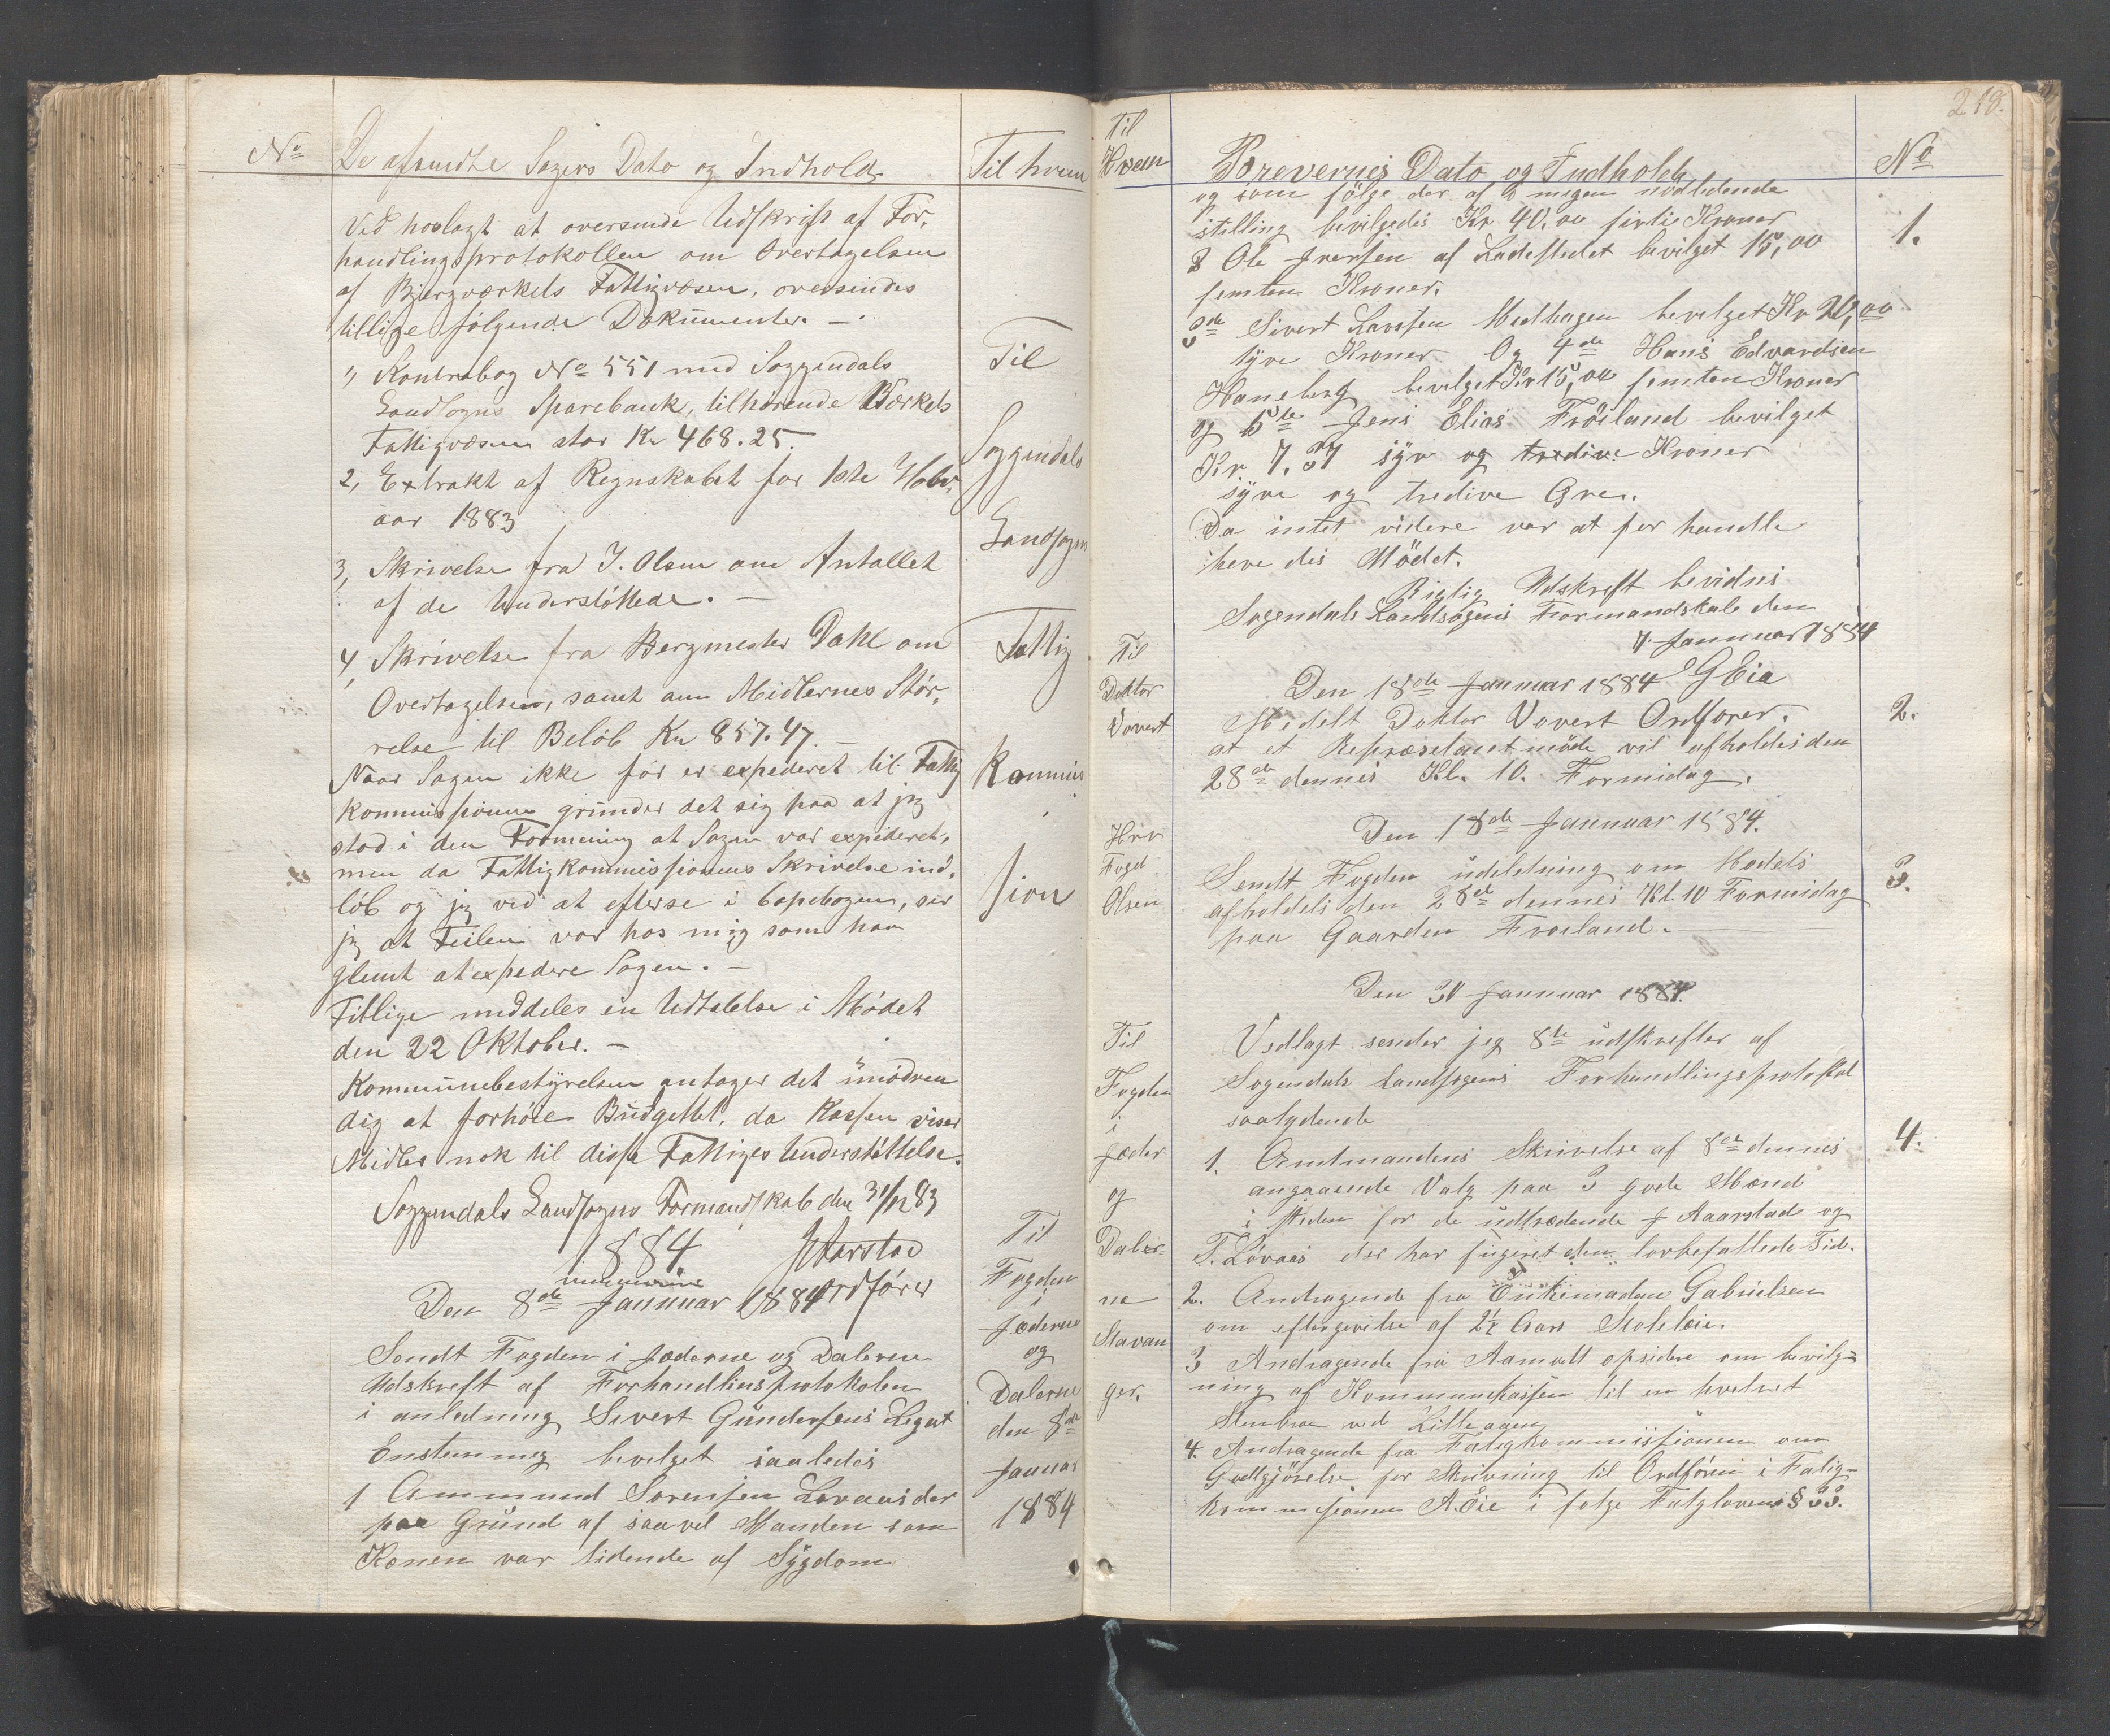 No
De afsendte Sagers Dato og Indhold
Til hvem
Ved hoslagt at oversende Udskrift af For-
handlingsprotokollen om Overtagelsen
af Bjergværkets Fattigvæsen, oversendes
tillige følgende Dokumenter. —
1, Kontrabog No 551 med Soggendals
Landsogns Sparebank, tilhørende Værkets
Fattigvæsen stor Kr 468.25.
2, Extrakt af Regnskabet for 1ste Halv-
aar 1883
3, Skrivelse fra J. Olsen om Antallet
af de Understøttede. —
4, Skrivelse fra Bergmester Dahl om
Overtagelsen, samt om Midlernes Stør-
relse til Beløb Kr 857.47. —
Naar Sagen ikke før er expederet til Fattig
kommissionen grunder det sig paa at jeg
stod i den Formening at Sagen var expederet,
men da Fattigkommissionens Skrivelse ind-
løb og jeg ved at efterse i Copebogen, ser
jeg at Feilen var hos mig som har
glemt at expedere Sagen. —
Tillige meddeles en Udtalelse i Mødet
den 22 Oktober. —
Kommunebestyrelsen antager det unødven
dig at forhøie Budgettet, da Kassen viser
Midler nok til disse Fattiges Understøttelse.
Soggendals Landsogns Formandskab den 31/12 83
1884 J Aarstad
Ordfører
Den 8de Januar 1884
Sendt Fogden i Jæderne og Dalerne
Udskreft af Forhandlinsprotokolen
i anledning Sivert Gundersens Legat
Enstemmig bevelget saaledes
1 Ammund Sørensen Lovaas der
paa Grund af saavel Manden som
Konen var lidende af Sygdom
Til
Soggendals
Landsogns
Fattig
Kommis
sion
Til
Fogden
i
Jæderne
og
Dalerne
den 8de
Januar
1884
218.
Til
Hvem
Brevernes Dato og Indhold
No
og som følge der af i megen nødlidende
stilling bevilgedes Kr. 40,00 førtie Kroner
2 Ole Iversen af Ladestedet bevilget 15,00
femten Kroner.
3de Sivert Larssen Medhagen bevelget Kr 20,00
tyve Kroner Og 4de Hans Edvardsen
Haneberg bevelget Kr 15,00 femten Kroner
og 5te Jens Elias Frøiland bevilget
Kr. 7.37 syv og tredive Kroner
syve og tredive Øre.
Da intet videre var at for handle
heve des Mødet.
Rigtig Udskreft bevidnes
Sogendals Landsogens Formandskab den
7 Januar 1884
G Eia
1.
Til
Doktor
Vovert
Den 18de Januar 1884
Medelt Doktor Vovert Ordfører.
at et Repræsetantmøde vil afholdes den
28de dennes Kl. 10. Formidag.
2.
Den 18de Januar 1884.
Herr
Fogd
Olsen
Sendt Fogden indeldning om Mødets
afholdels den 28de dennes Kl. 10 Formidag
paa Gaarden Frøiland.
3.
Den 30 Januar 1884.
Til
Fogden
i
Jæder
og
Daler-
ne
Stavan
ger.
Vedlagt sender jeg 8te udskrefter af
Sogendals Landsogens Forhandlingsprotokol
saalydende
1. Amtmandens Skrivelse af 8de dennes
angaaende Valg paa 3 gode Mænd
i steden for de udtrædende J Aarstad og
T. Løvaas der har fugeret den lovbefallede Tid.
2. Andragende fra Enkemadam Gabrielsen
om eftergivelse af 2½ Aars Stoleleie.
3 Andragende fra Aamodt opsidere om bevilg-
ning af Kommunekassen til en hvelvet
Stenbro ved Lilleaaen
4. Andragende fra Fatigkommissionen om
Godtgjørelse for Skrivning til Ordføren i Fatig-
kommissionen A. Eie i følge Fatiglovens § 33.
4.